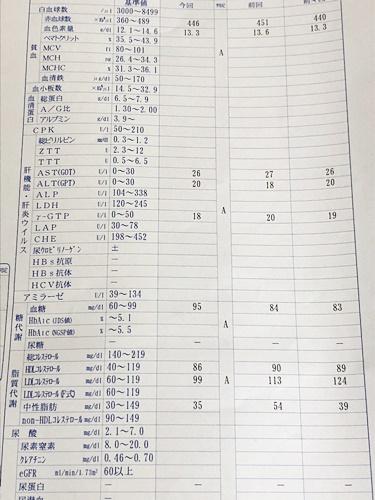 基準値 今回 判定 前回
白血球数 3000～8499
赤血球数 360～489 446 451 440
血色素量 g/dl 12.1～14.6 13.3 13.6 13.3
ヘマトクリット % 35.5～43.9
貧血 MCV fl 80～101 A
MCH pg 26.4～34.3
MCHC % 31.3～36.1
血清鉄 50～170
血小板数 14.5～32.9
血清蛋白 総蛋白 g/dl 6.5～7.9
A/G比 1.30～2.00
アルブミン g/dl 3.9～
CPK U/l 50～210
総ビリルビン mg/dl 0.3～1.2
ZTT 2.3～12
TTT 0.5～6.5
肝機能・肝炎ウイルス AST(GOT) U/l 0～30 26 27 26
ALT(GPT) U/l 0～30 20 18 20
ALP U/l 104～338
LDH U/l 120～245
γ-GTP U/l 0～50 18 A 20 19
LAP U/l 30～78
CHE U/l 198～452
尿ウロビリノーゲン ±
HBs抗原 －
HBs抗体 －
HCV抗体 －
アミラーゼ U/l 39～134
糖代謝 血糖 mg/dl 60～99 95 84 83
HbA1c (JDS値) % ～5.1 A
HbA1c (NGSP値) % ～5.5
尿糖 － － － －
脂質代謝 総コレステロール mg/dl 140～219
HDLコレステロール mg/dl 40～119 86 90 89
LDLコレステロール mg/dl 60～119 99 A 113 124
LDLコレステロール(F式) mg/dl 60～119
中性脂肪 mg/dl 30～149 35 54 39
non-HDLコレステロール mg/dl 90～149
尿酸 mg/dl 2.1～7.0
尿素窒素 mg/dl 8.0～20.0
クレアチニン mg/dl 0.46～0.70
eGFR ml/min/1.73㎡ 60以上
尿蛋白 － － － －
尿潜血